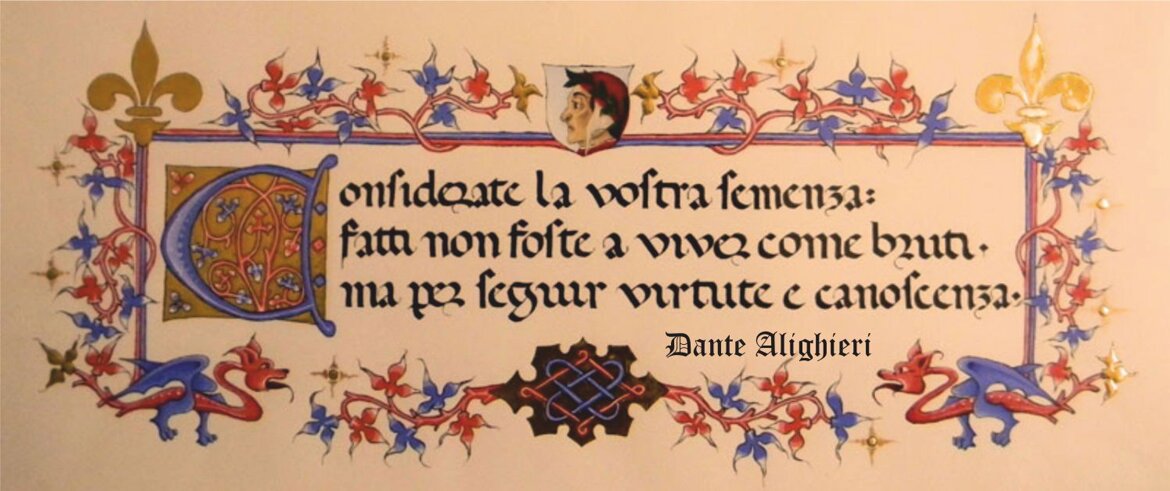 Considerate la vostra semenza:
fatti non foste a viver come bruti.
ma per seguir virtute e canoscenza.
Dante Alighieri